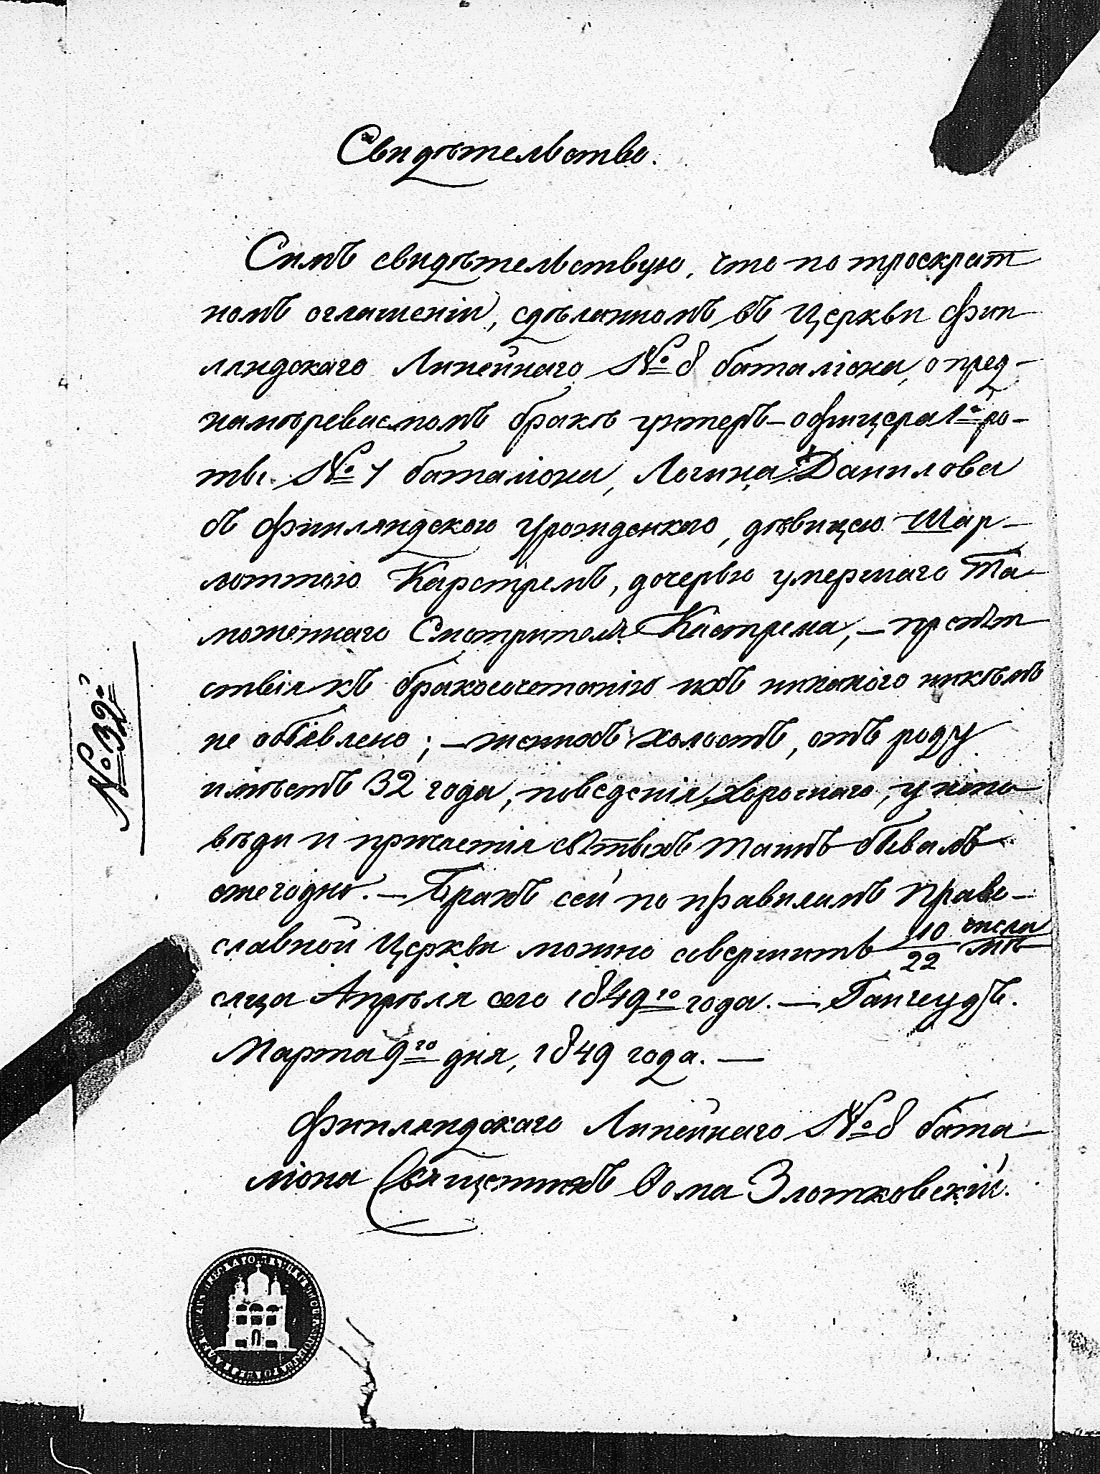 Свидѣтельство.
Симъ свидѣтельствую, что по троекрат
номъ оглашеніи, сдѣланномъ въ Церкви Фин
ляндскаго Линейнаго № 8 баталіона, о пред-
намѣреваемомъ бракѣ унтеръ-офицера 1й ро-
ты № 7 баталіона, Логина Данилова
съ Финляндскою Урожденкою, дѣвицею Шар-
лоттою Карстремъ, дочерью умершаго Та-
моженнаго Смотрителя Кастрема, – препят
ствія къ бракосочетанію ихъ никакого никѣмъ
не объявлено; – женихъ холостъ, отъ роду
имѣетъ 32 года, поведенія хорошаго, у испо
вѣди и причастія св. Тайнъ бывалъ
ежегодно. – Бракъ сей по правиламъ Право-
славной Церкви можно совершить 10/22 числа мѣ
сяца Апрѣля сего 1849го года. – Гангеудъ.
Марта 9го дня, 1849 года. –
Финляндскаго Линейнаго № 8 бата-
ліона Священникъ Ѳома Злотковскій.
№ 32.